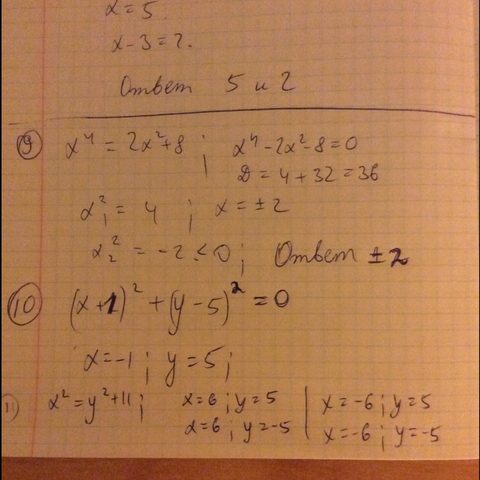 x = 5.
x - 3 = 2.
Ответ 5 и 2
9 x⁴ = 2x² + 8 ; x⁴ - 2x² - 8 = 0
D = 4 + 32 = 36
x₁² = 4 ; x = ± 2
x₂² = -2 < 0 ; Ответ ± 2
10 (x + 1)² + (y - 5)² = 0
x = -1 ; y = 5 ;
11 x² = y² + 11 ; x = 6 ; y = 5 | x = -6 ; y = 5
x = 6 ; y = -5 | x = -6 ; y = -5